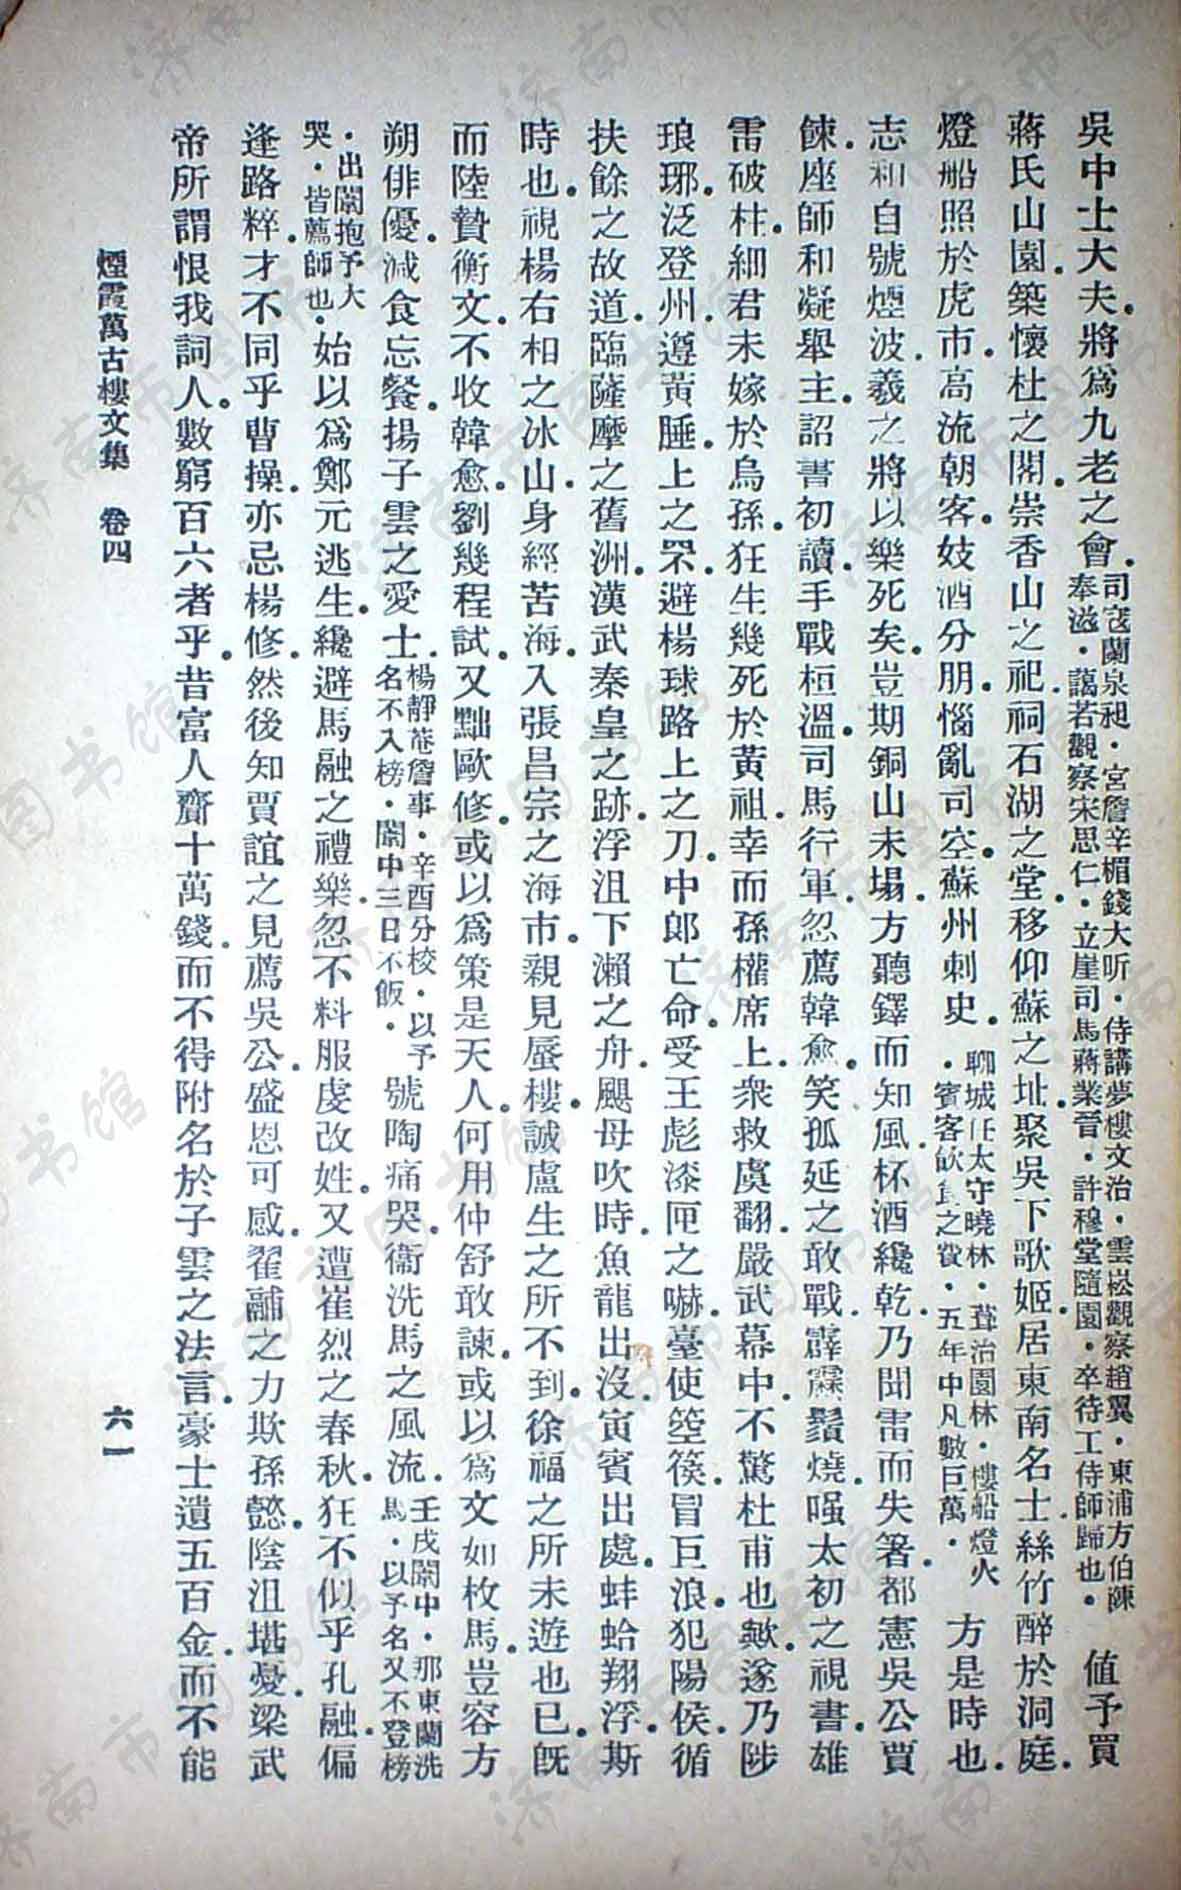 吳中士大夫．將爲九老之會．司寇蘭泉昶．宮詹辛楣錢大昕．侍講夢樓文治．雲崧觀察趙翼．東浦方伯陳奉滋．藹若觀察宋思仁．立崖司馬蔣業晉．許穆堂隨園．卒待工侍師歸也．值予買
蔣氏山園．築懷杜之閣．崇香山之祀．祠石湖之堂．移仰蘇之址．聚吳下歌姬．居東南名士．絲竹醉於洞庭．
燈船照於虎市．高流朝客．妓酒分朋．惱亂司空．蘇州刺史．聊城任太守曉林．葺治園林．樓船燈火．賓客飲食之費．五年中凡數巨萬．方是時也．
志和自號煙波．羲之將以樂死矣．豈期銅山未塌．方聽鐸而知風．杯酒纔乾．乃聞雷而失箸．都憲吳公賈
餗．座師和凝舉主．詔書初讀．手戰桓溫．司馬行軍．忽薦韓愈．笑孤延之敢戰．霹靂鬚燒．嗤太初之視書．雄
雷破柱．細君未嫁於烏孫．狂生幾死於黃祖．幸而孫權席上．衆救虞翻．嚴武幕中．不驚杜甫也歟．遂乃陟
琅琊．泛登州．遵黃腄上之罘．避楊球路上之刀．中郞亡命．受王彪漆匣之嚇．臺使箜篌．冒巨浪．犯陽侯．循
扶餘之故道．臨薩摩之舊洲．漢武秦皇之跡．浮沮下瀨之舟．颶母吹時．魚龍出沒．寅賓出處．蚌蛤翔浮．斯
時也．視楊右相之冰山．身經苦海．入張昌宗之海市．親見蜃樓．誠盧生之所不到．徐福之所未遊也已．旣
而陸贄衡文．不收韓愈．劉幾程試．又黜歐修．或以爲策是天人．何用仲舒敢諫．或以爲文如枚馬．豈容方
朔俳優．減食忘餐．揚子雲之愛士．楊靜菴詹事．辛酉分校．以予名不入榜．闈中三日不飯．號啕痛哭．衞洗馬之風流．壬戌闈中．那東蘭洗馬．以予名又不登榜
．出闈抱予大哭．皆薦師也．始以爲鄭元逃生．纔避馬融之禮樂．忽不料服虔改姓．又遭崔烈之春秋．狂不似乎孔融．偏
逢路粹．才不同乎曹操．亦忌楊修．然後知賈誼之見薦吳公．盛恩可感．翟酺之力欺孫懿．陰沮堪憂．梁武
帝所謂恨我詞人．數窮百六者乎．昔富人齎十萬錢．而不得附名於子雲之法言．豪士遺五百金．而不能
煙霞萬古樓文集　卷四　六一